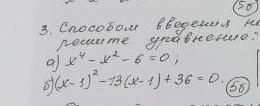 5б
3. Способом введения
решите уравнение:
а) x⁴ - x² - 6 = 0;
б) (x-1)² - 13(x-1) + 36 = 0. 5б